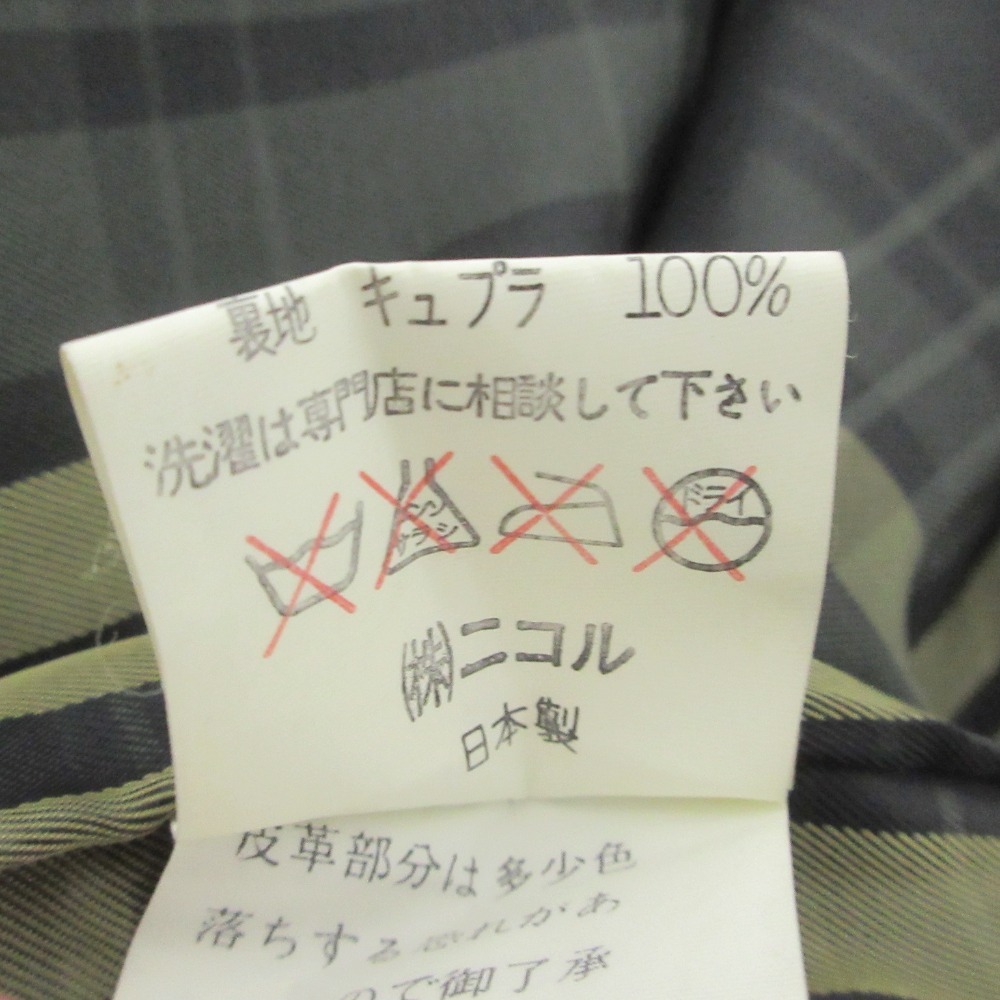 裏地 キュプラ 100%
洗濯は専門店に相談して下さい
エンソ サラシ ドライ
㈱ニコル
日本製
皮革部分は多少色
落ちする恐れがあ
ので御了承